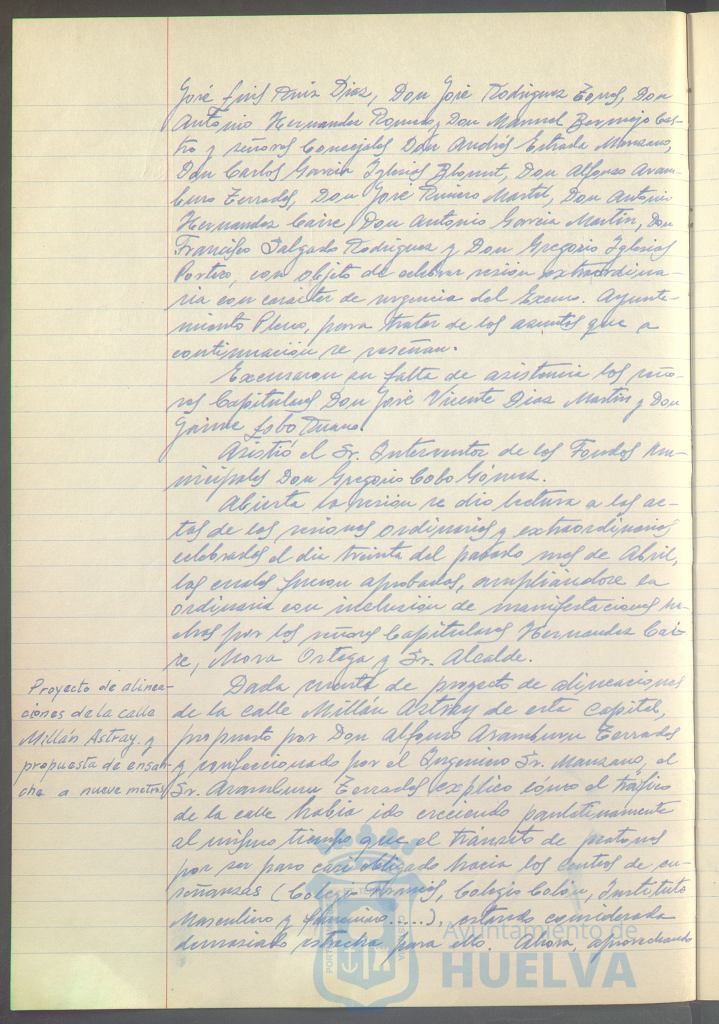 José Luis Ruiz Diaz, Don José Rodriguez Torres, Don
Antonio Hernandez Romero y Don Manuel Bermejo Cas-
tro y señores Concejales Don Andrés Estrada Manzano,
Don Carlos Garcia Yglesias Blount, Don Alfonso Aram-
buru Terrades, Don José Rivero Martel, Don Antonio
Hernandez Caire, Don Antonio Garcia Martin, Don
Francisco Salgado Rodriguez y Don Gregorio Yglesias
Portero, con objeto de celebrar sesión extraordina-
ria con carácter de urgencia del Excmo. Ayunta-
miento Pleno, para tratar de los asuntos que a
continuación se reseñan.
Excusaron su falta de asistencia los seño-
res Capitulares Don José Vicente Diaz Martin y Don
Jaime Lobo
Asistió el Sr. Interventor de los Fondos Mu-
nicipales Don Gregorio Cobo Gómez.
Abierta la sesión se dio lectura a las ac-
tas de las sesiones ordinarias y extraordinarias
celebradas el dia treinta del pasado mes de Abril,
las cuales fueron aprobadas, ampliándose la
ordinaria con inclusión de manifestaciones he-
chas por los señores Capitulares Hernandez Cai-
re, Mora Ortega y Sr. Alcalde.
Proyecto de alinea-
ciones de la calle
Millán Astray. y
propuesta de ensan-
che a nueve metros
Dada cuenta de proyecto de alineaciones
de la calle Millán Astray de esta Capital,
propuesto por Don Alfonso Aramburu Terrades
y confeccionado por el Ingeniero Sr. Manzano, el
Sr. Aramburu Terrades explicó cómo el tráfico
de la calle habia ido creciendo paulatinamente
al mismo tiempo que el tránsito de peatones
por ser paso casi obligado hacia los centros de en-
señanzas (Colegio Colegio Colón, Instituto
Masculino y femenino.....), estando considerada
demasiado estrecha para ello. Ahora, aprovechando
Ayuntamiento de
HUELVA